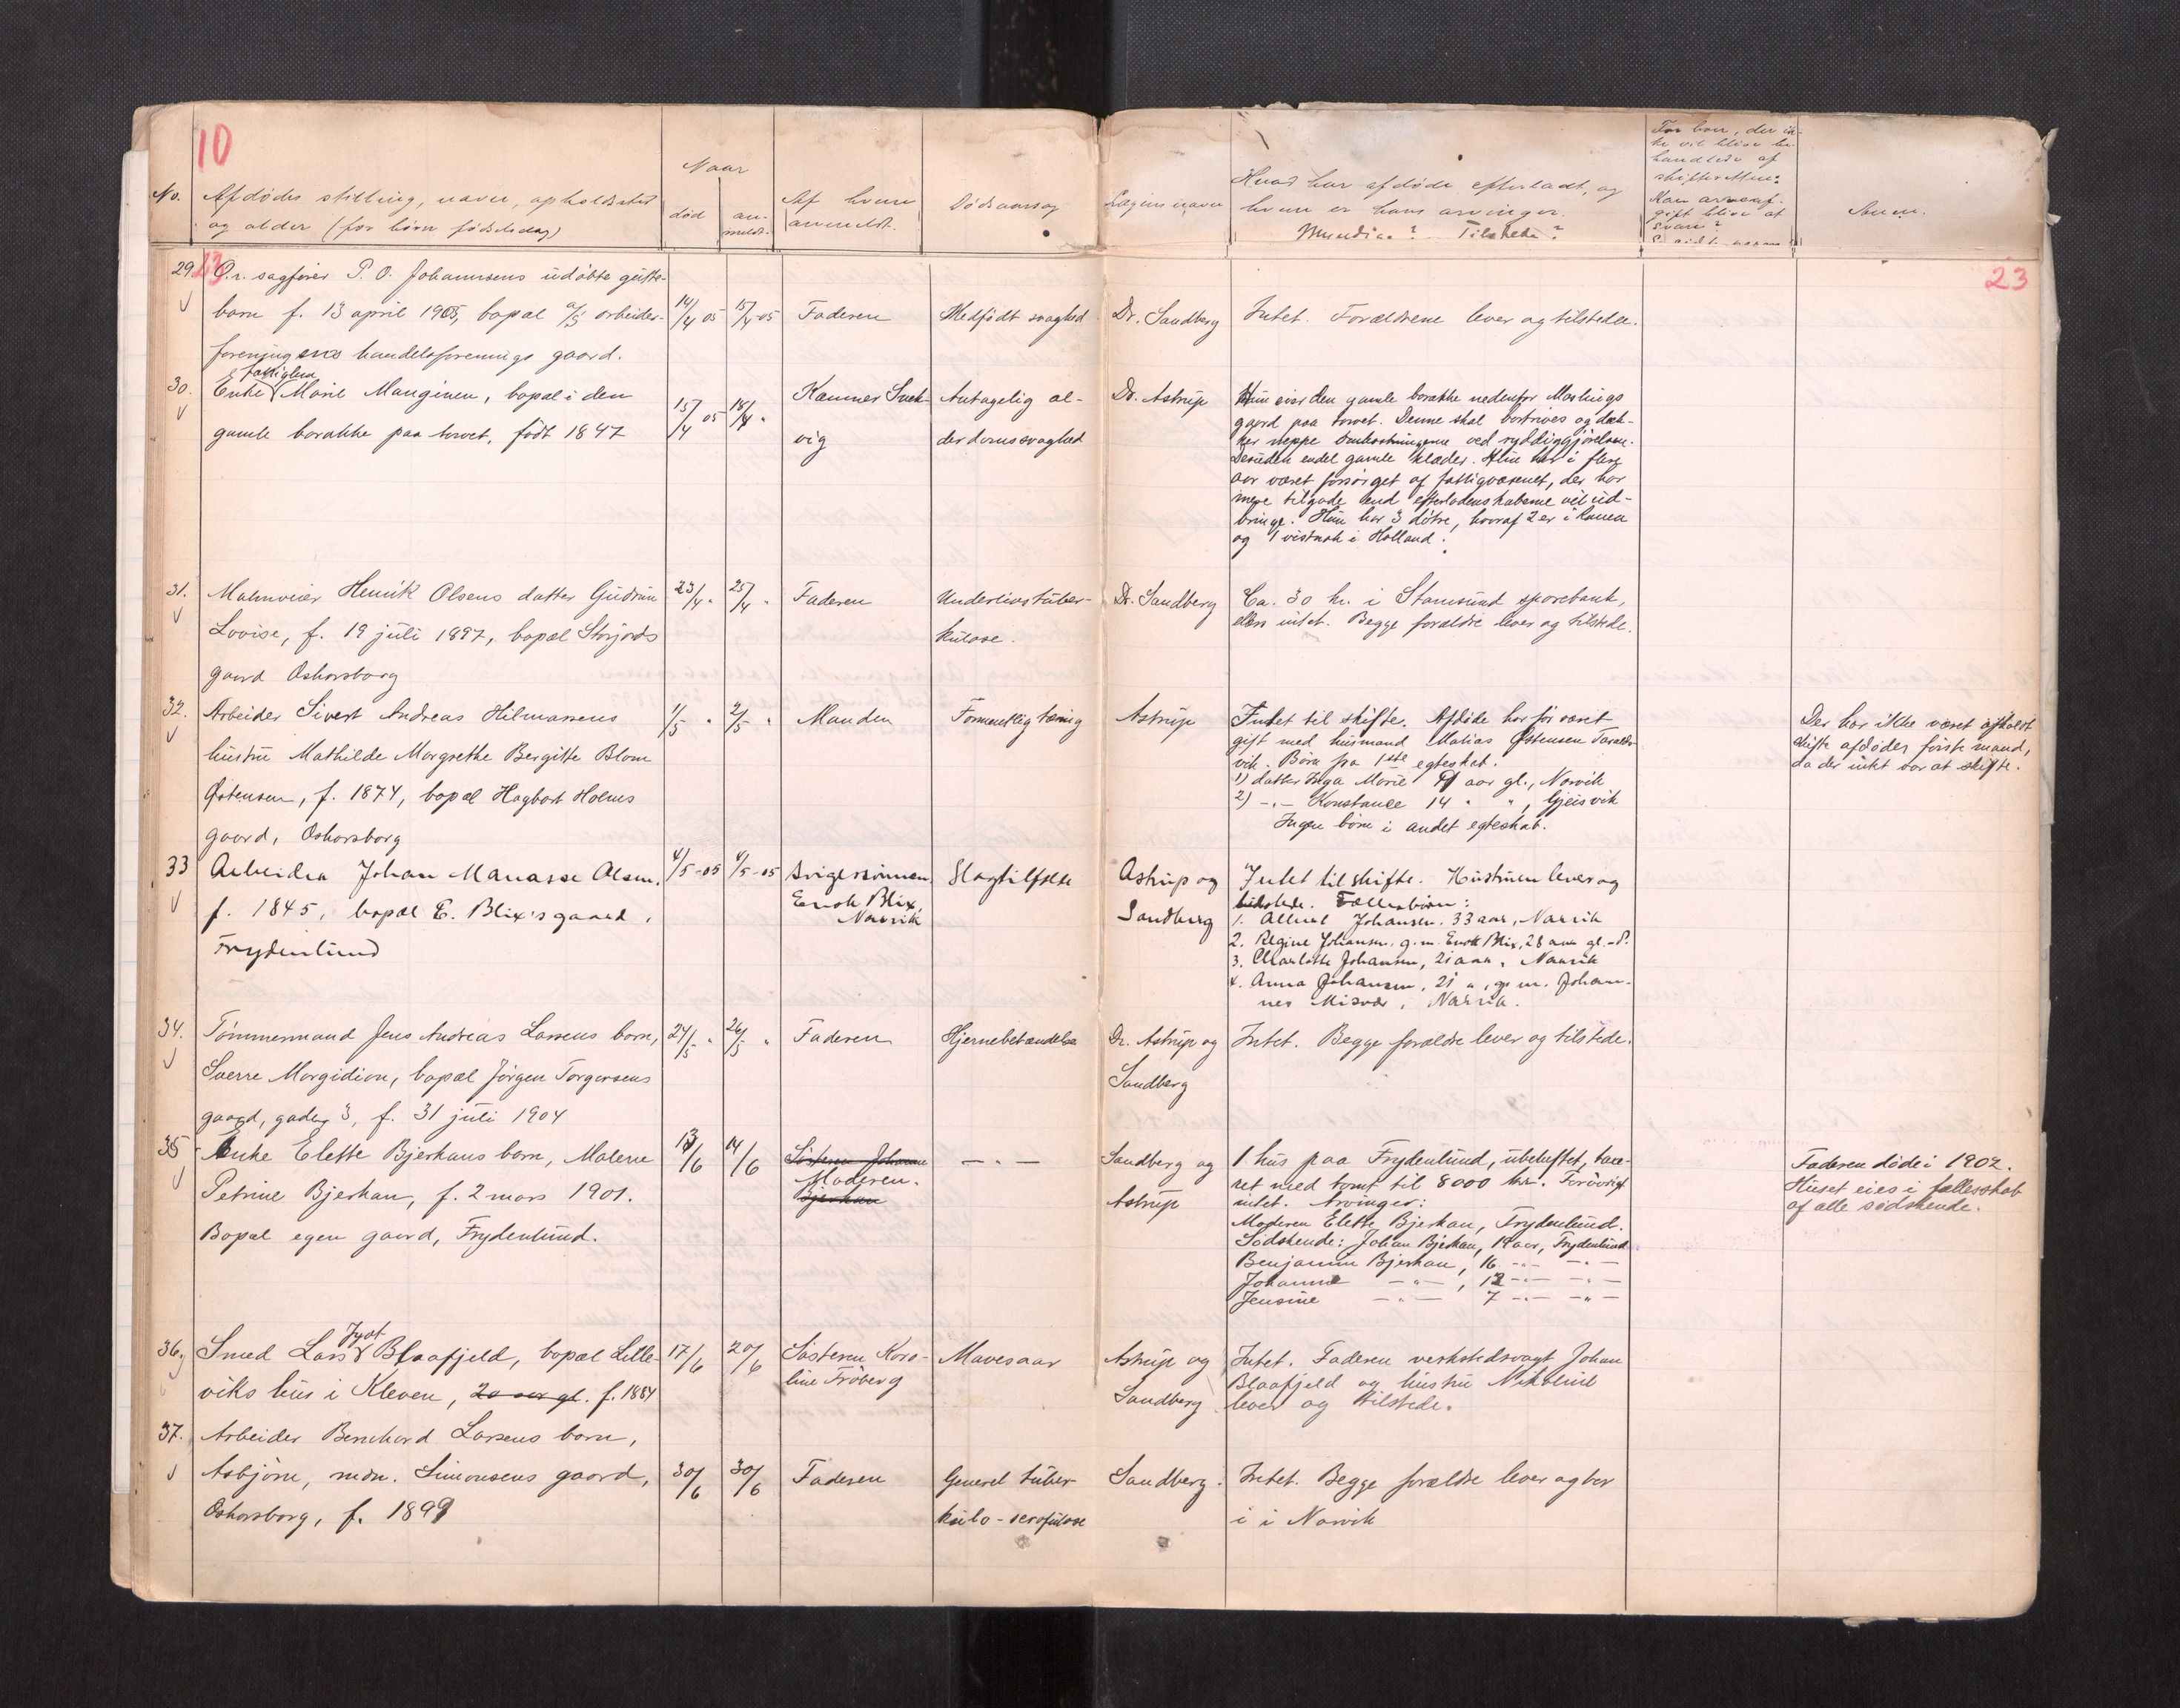 10
No.
Afdødes stilling, navn, opholdssted
og alder (for børn fødselsdag)
Naar
død
an-
meldt.
Af hvem
anmeldt.
Dødsaarsag
Lægens navn
Hvad har afdøde efterladt, og
hvem er hans arvinger.
Myndige? Tilstede?
For boer, der ik-
ke vil blive be-
handlede af
skifteretten:
Kan arveaf-
gift blive at
svare?
Anm.
23
23
29. O.r. sagfører P. O. Johannsens udøbte gutte-
barn f. 13 april 1905, bopæl a/s arbeider-
foreningens handelsforenings gaard.
14/4 05
15/4-05
Faderen
Medfødt svaghed
Dr. Sandberg
Intet. Forældrene lever og tilstede.
30. Enke fattiglem Marie Manginen, bopæl i den
gamle barakke paa torvet, født 1847
15/4 05
18/4 "
Kæmner Snek-
vig
Antagelig al-
derdomssvaghed
Dr. Astrup
Hun eier den gamle barakke nedenfor Moslings
gaard paa torvet. Denne skal bortrives og dæk-
ker neppe omkostningerne ved ryddiggjørelsen.
Desuden endel gamle klæder. Hun har i flere
aar været forsørget af fattigvæsenet, der har
mere tilgode end efterladenskaberne vil ud-
bringe. Hun har 3 døtre, hvoraf 2 er i
og 1 vistnok i Holland.
31. Malmveier Henrik Olsens datter Gudrun
Lovise, f. 19 juli 1897, bopæl Storjords
gaard Oskarsborg
23/4 "
25/4 "
Faderen
Underlivstuber-
kulose.
Dr. Sandberg
Ca. 30 kr. i Stamsund sparebank,
ellers intet. Begge forældre lever og tilstede.
32. Arbeider Sivert Andreas Hilmarsens
hustru Mathilde Margrethe Bergitte Blom
Østensen, f. 1874, bopæl Hagbart Holms
gaard, Oskarsborg
1/5 "
2/5 "
Manden
Formentlig tæring
Astrup
Intet til skifte. Afdøde har før været
gift med husmand Matias Østensen Taralds-
vik. Børn fra 1ste egteskab.
1) datter Inga Marie aar gl., Narvik
2) -"- Konstance 14 " ", Gjeisvik
Ingen børn i andet egteskab.
Der har ikke været afholdt
skifte afdødes første mand,
da der intet var at skifte.
33 Arbeider Johan Manasse Olsen.
f. 1845, bopæl E. Blix's gaard,
Frydenlund
4/5-05
4/5-05
Svigersønnen
Enok Blix,
Narvik
Slagtilfælde
Astrup og
Sandberg
Intet til skifte. Hustruen lever og
tilstede. Fællesbørn:
1. Johansen. 33 aar, Narvik
2. Regine Johansen. g.m. Enok Blix, 28 aar gl. -d.
3. Charlotte Johansen, 21 aar, Narvik
4. Anna Johansen, 21 ", g. m. Johan-
nes Misvær, Narvik.
34. Tømmermand Jens Andreas Larsens barn,
Sverre Margidion, bopæl Jørgen Torgersens
gaard, gade 3, f. 31 juli 1904
24/5 "
26/5 "
Faderen
Hjernebetændelse
Dr. Astrup og
Sandberg
Intet. Begge forældre lever og tilstede.
35 Enke Elette Bjerkans barn, Malene
Petrine Bjerkan, f. 2 mars 1901.
Bopæl egen gaard, Frydenlund.
13/6
14/6
Søsteren Johanne
Moderen.
Bjerkan
— " —
Sandberg og
Astrup
1 hus paa Frydenlund, ubeheftet, taxe-
ret med tomt til 8000 kr. Forøvrigt
intet. Arvinger:
Moderen Elette Bjerkan, Frydenlund.
Sødskende: Johan Bjerkan, 19 aar, Frydenlund
Benjamin Bjerkan, 16 -"- -"-
Johanne -"-, 12 -"- -"-
Jensine -"- 7 -"- -"-
Faderen døde i 1902.
Huset eies i fællesskab
af alle sødskende.
36. Smed Lars Blaafjeld, bopæl Lille-
viks hus i Kleven, 20 aar gl. f. 1884
17/6
20/6
Søsteren Karo-
line Frøberg
Mavesaar
Astrup og
Sandberg
Intet. Faderen verkstedsvagt Johan
Blaafjeld og hustru Nikoline
lever og tilstede.
37. Arbeider Bernhard Larsens barn,
Asbjørn, mdn. Simonsens gaard,
Oskarsborg, f. 1899
30/6
30/6
Faderen
Generel tuber-
kulo-scrofulose
Sandberg.
Intet. Begge forældre lever og bor
i i Narvik